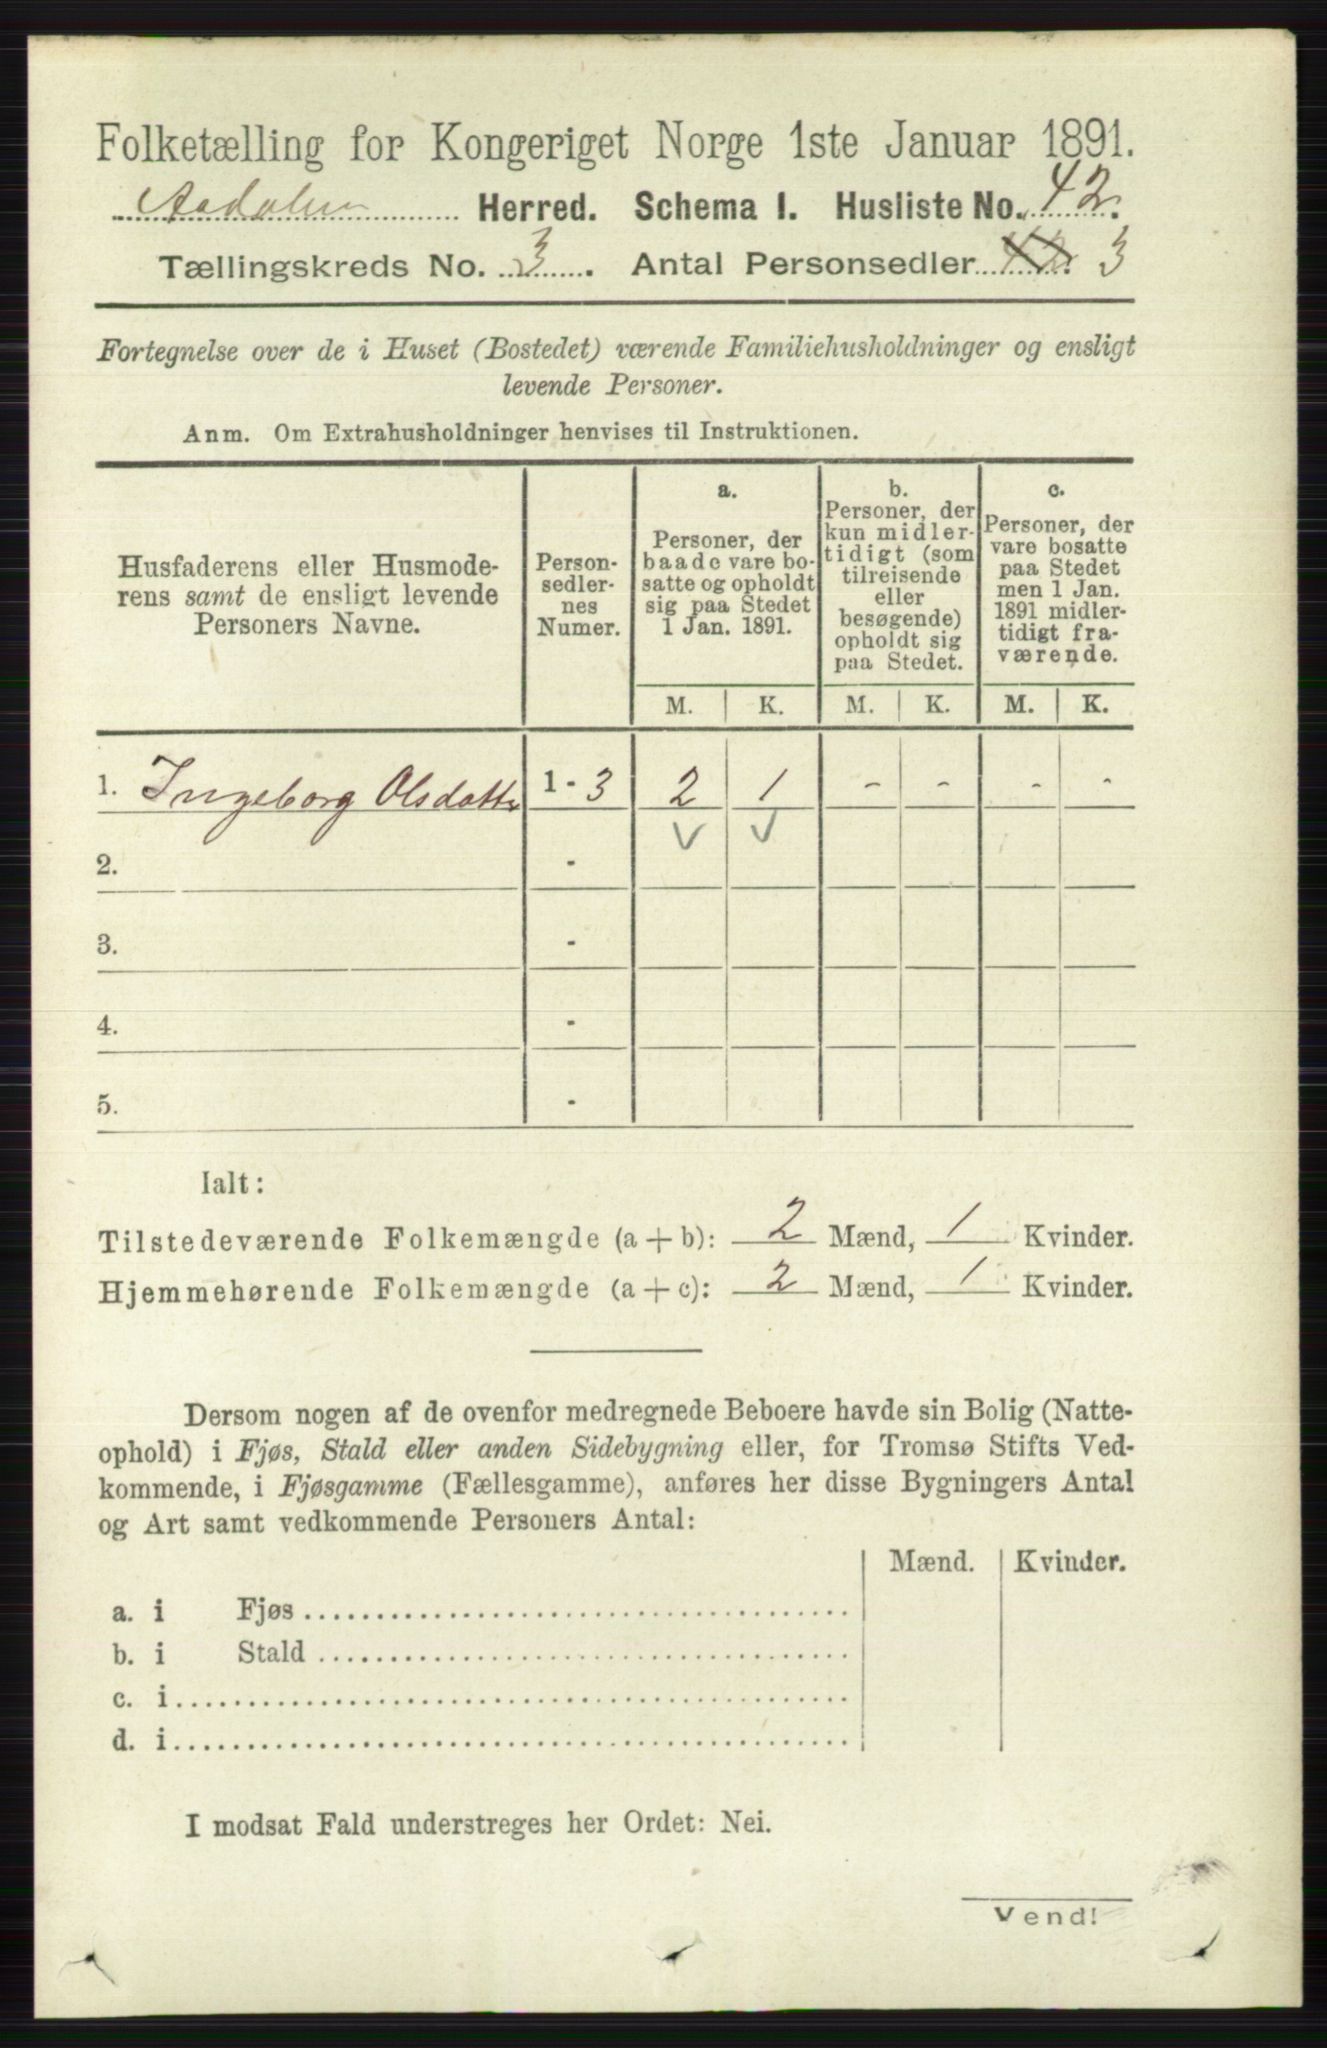 Folketælling for Kongeriget Norge 1ste Januar 1891.
Aadalen Herred. Schema I. Husliste No. 42.
Tællingskreds No. 3. Antal Personsedler 3
Fortegnelse over de i Huset (Bostedet) værende Familiehusholdninger og ensligt
levende Personer.
Anm. Om Extrahusholdninger henvises til Instruktionen.
Husfaderens eller Husmode-
rens samt de ensligt levende
Personers Navne.
Person-
sedler-
nes
Numer.
a.
Personer, der
baade vare bo-
satte og opholdt
sig paa Stedet
1 Jan. 1891.
b.
Personer, der
kun midler-
tidigt (som
tilreisende
eller
besøgende)
opholdt sig
paa Stedet.
c.
Personer, der
vare bosatte
paa Stedet
men 1 Jan.
1891 midler-
tidigt fra-
værende.
M. K. M. K. M. K.
1. Ingeborg Olsdatter 1 - 3 2 1 - - - -
2. -
3. -
4. -
5. -
Ialt:
Tilstedeværende Folkemængde (a + b): 2 Mænd, 1 Kvinder.
Hjemmehørende Folkemængde (a + c): 2 Mænd, 1 Kvinder.
Dersom nogen af de ovenfor medregnede Beboere havde sin Bolig (Natte-
ophold) i Fjøs, Stald eller anden Sidebygning eller, for Tromsø Stifts Ved-
kommende, i Fjøsgamme (Fællesgamme), anføres her disse Bygningers Antal
og Art samt vedkommende Personers Antal:
Mænd. Kvinder.
a. i Fjøs
b. i Stald
c. i
d. i
I modsat Fald understreges her Ordet: Nei.
Vend!